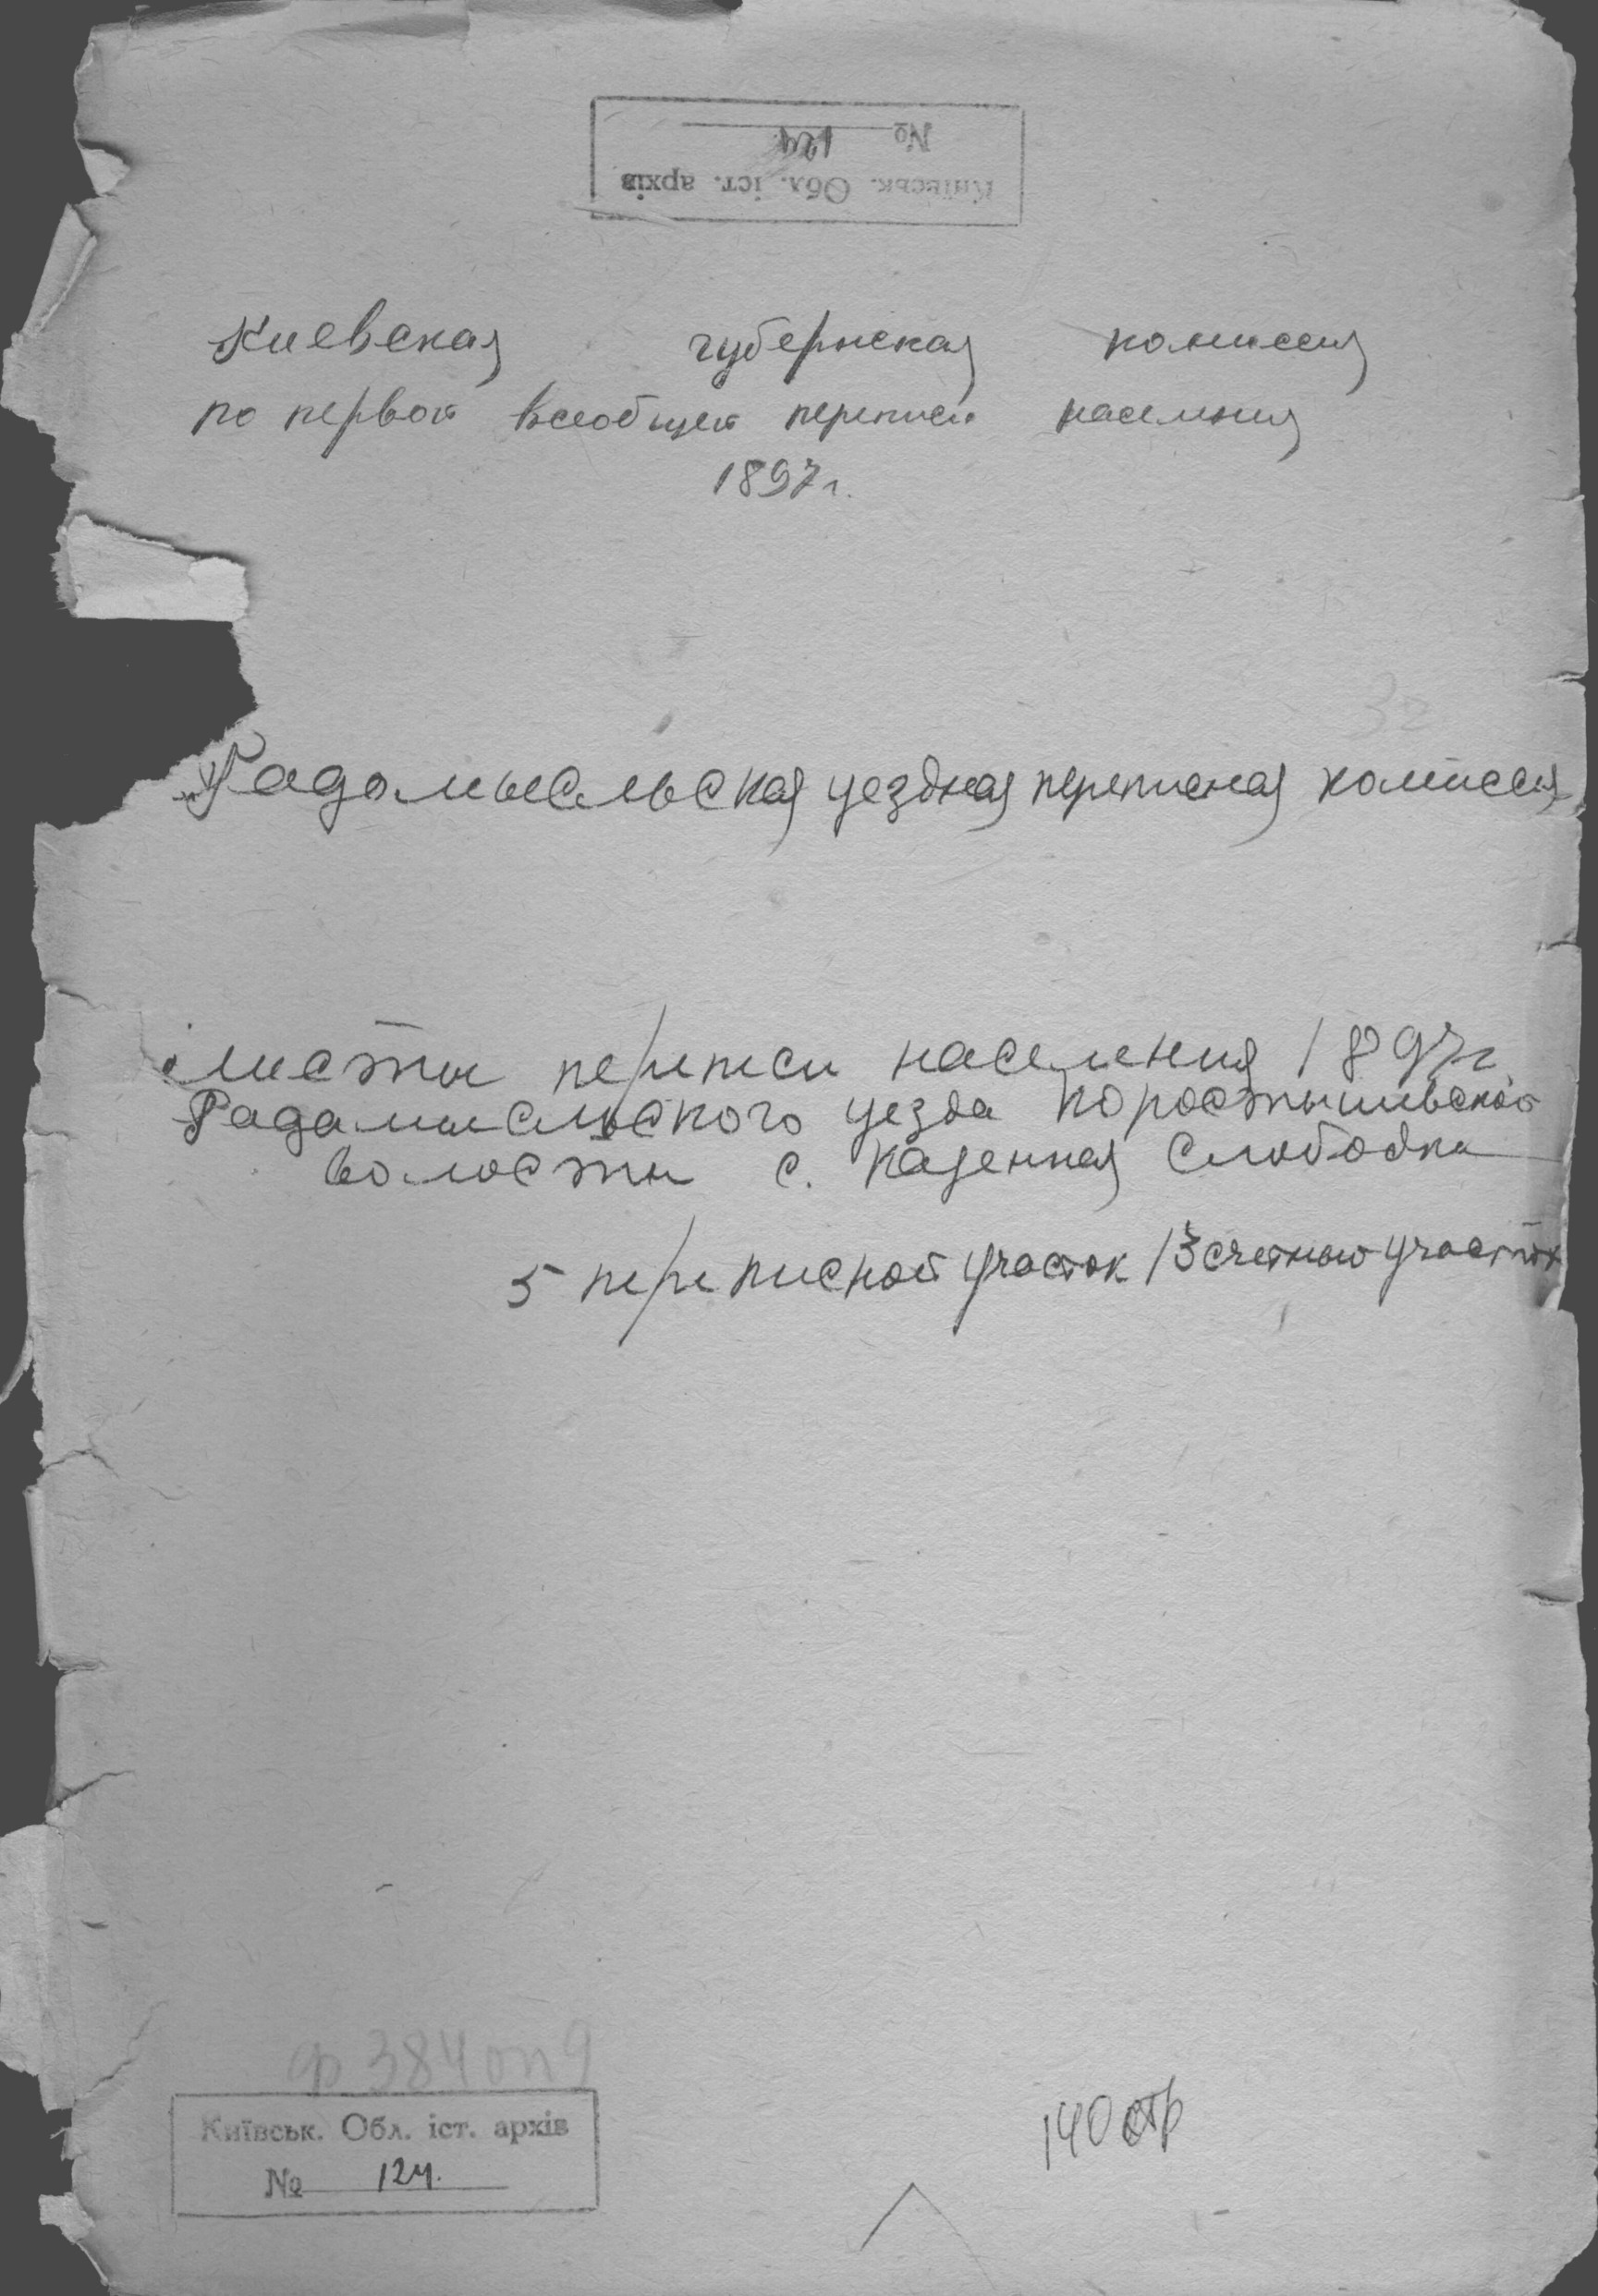 № 124
Київськ. Обл. іст. архів
Киевская губернская комиссия
по первой всеобщей переписи населения
1897 г.
Радомысльская уездная переписная комиссия
Листы переписи населения 1897 г
Радомысльского уезда Коростышевской
волости с. Казенная Слободка
5 переписной участок 13 счетный участок
ф 384 оп 9
Київськ. Обл. іст. архів
№ 124.
140 стр